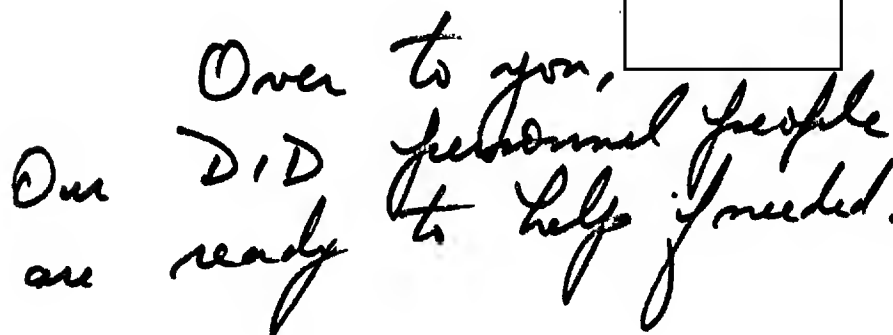 Over to you,
Our DID personnel people
are ready to help if needed.